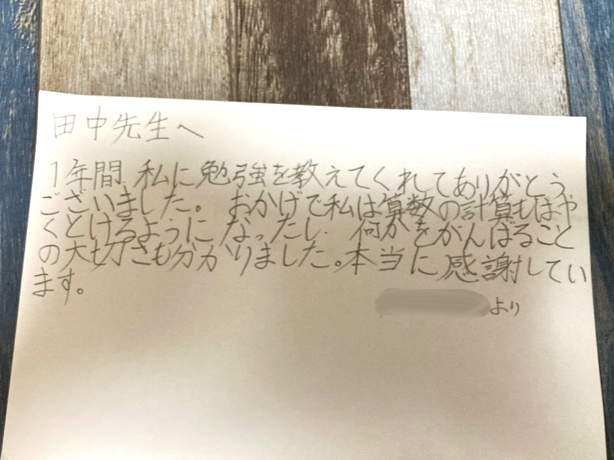 田中先生へ
1年間、私に勉強を教えてくれてありがとう
ございました。おかげで私は算数の計算もはや
くとけるようになったし、何かをがんばること
の大切さも分かりました。本当に感謝してい
ます。
より